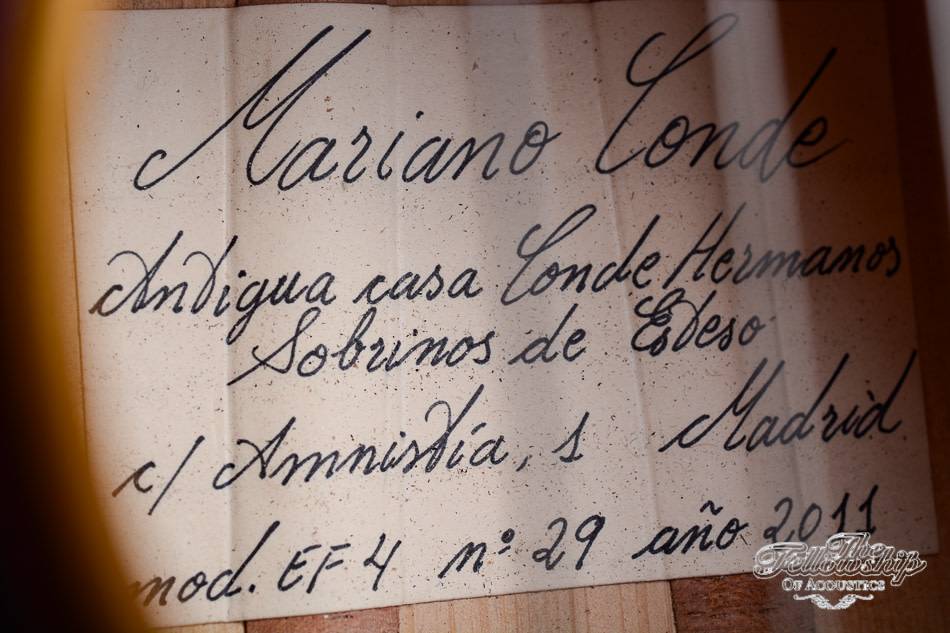 Mariano Conde
Antigua casa Conde Hermanos
Sobrinos de Esteso
c/ Amnistía, 1 Madrid
mod. EF 4 nº 29 año 2011
The
Fellowship
Of Acoustics